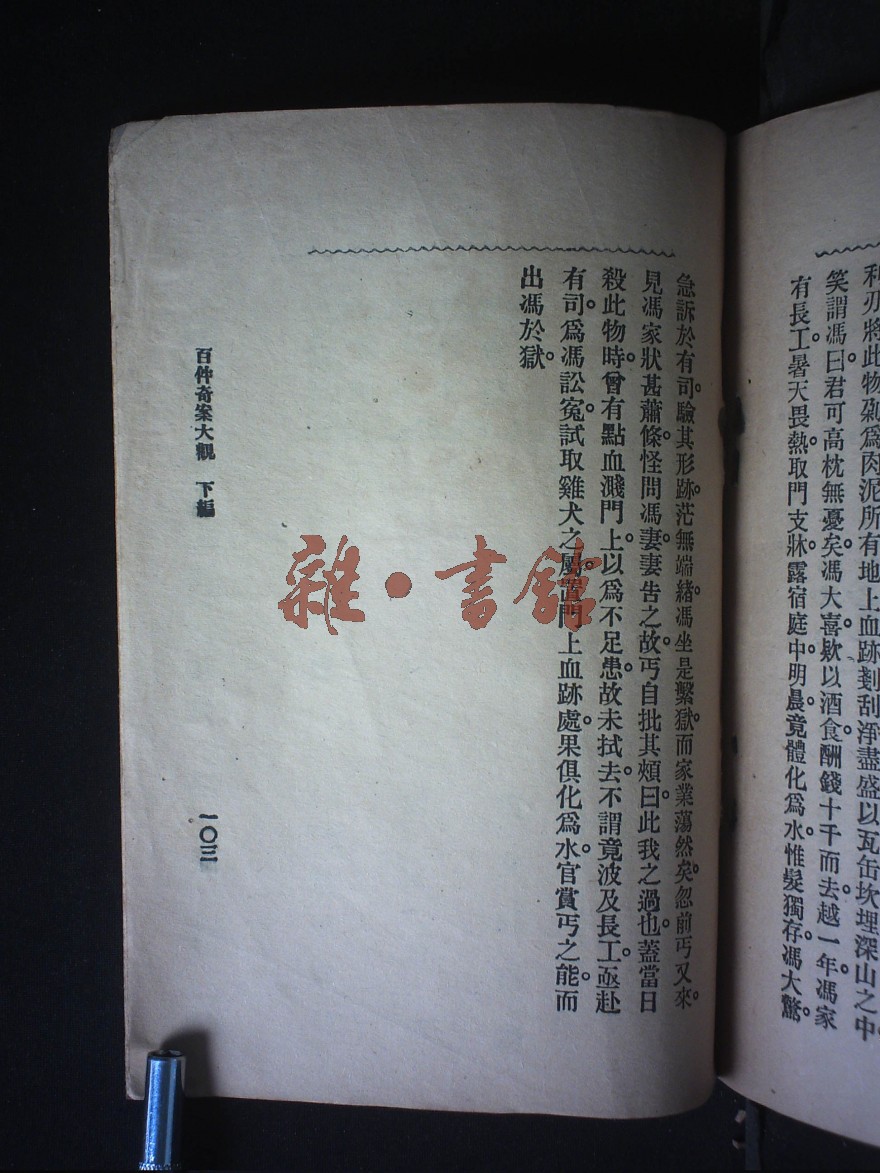 利刃將此物剁爲肉泥所有地上血跡剗刮淨盡盛以瓦缶坎埋深山之中
笑謂馮曰君可高枕無憂矣。馮大喜。欵以酒食。酬錢十千而去。越一年。馮家
有長工。暑天畏熱。取門支牀。露宿庭中。明晨。竟體化爲水。惟髮獨存。馮大驚。
急訴於有司。驗其形跡。茫無端緒。馮坐是繫獄。而家業蕩然矣。忽前丐又來。
見馮家狀甚蕭條。怪問馮妻。妻告之故。丐自批其頰曰。此我之過也。蓋當日
殺此物時。曾有點血濺門上。以爲不足患。故未拭去。不謂竟波及長工。亟赴
有司。爲馮訟寃。試取雞犬之屬。置門上血跡處。果俱化爲水。官賞丐之能。而
出馮於獄。
百件奇案大觀 下編
一〇三
雜·書館